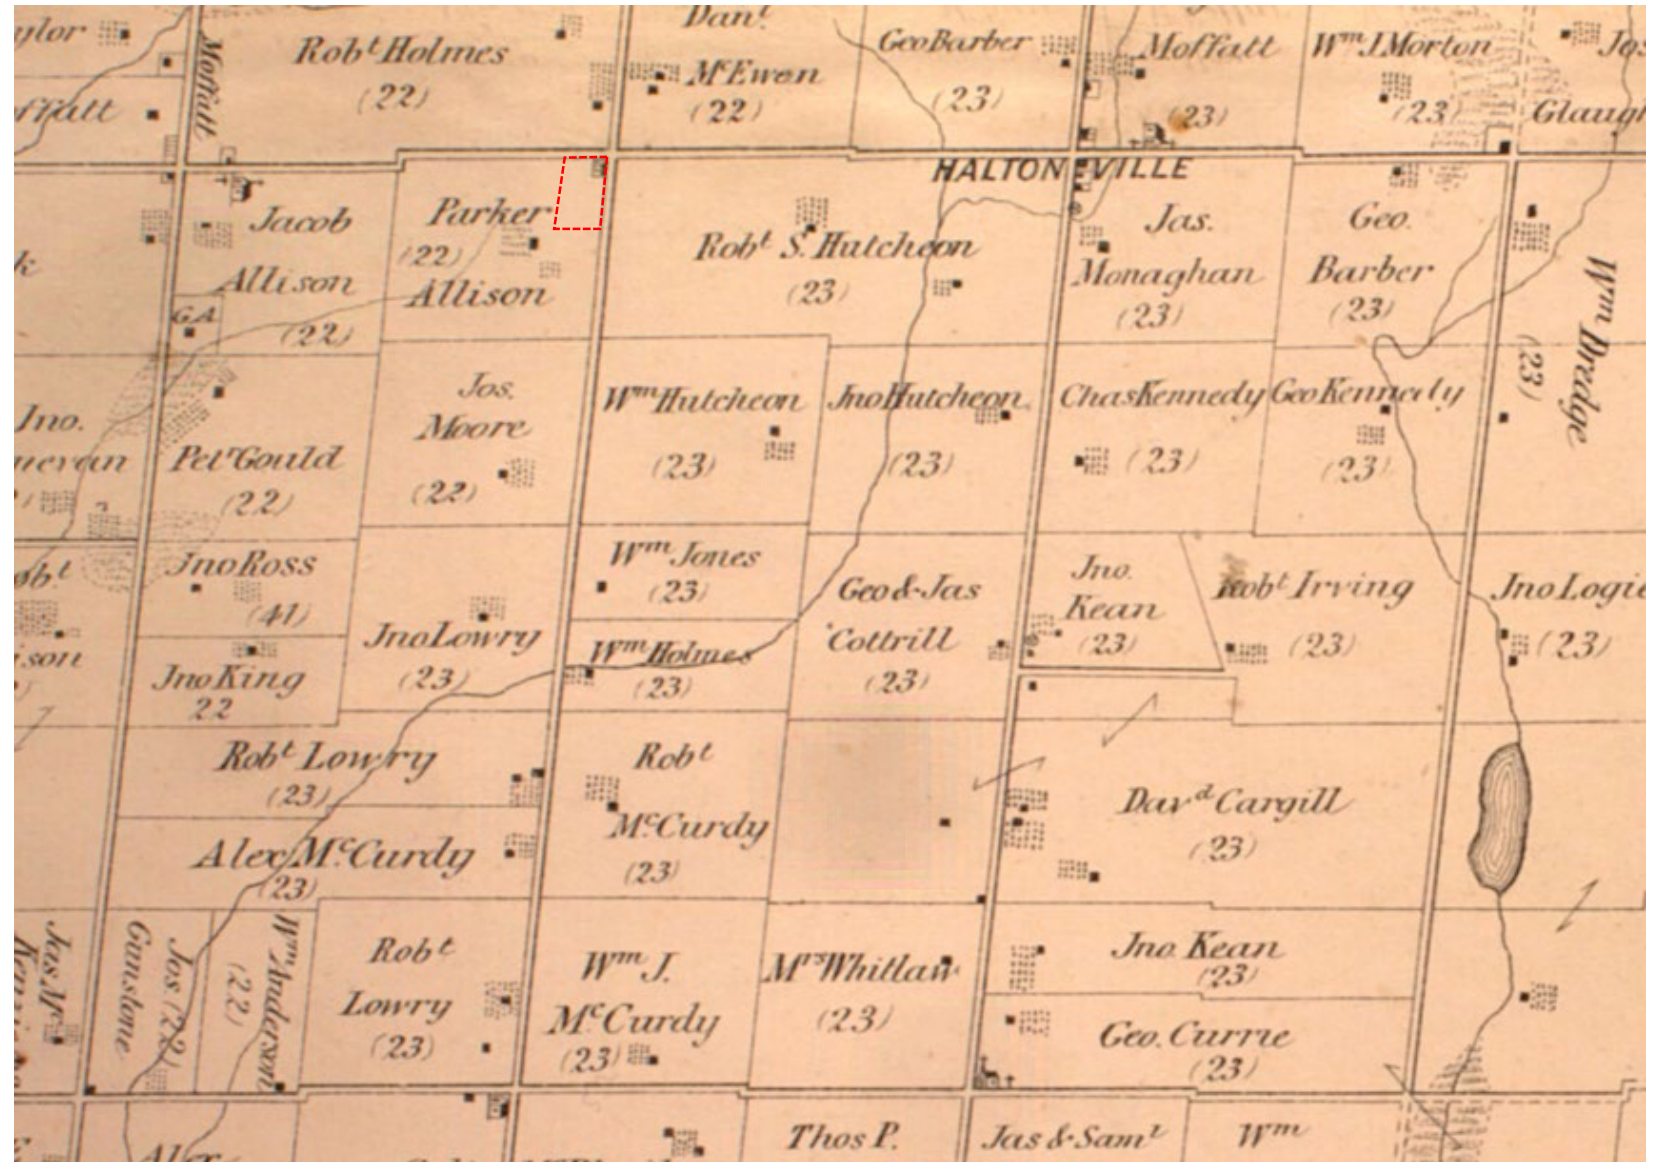 Moffatt
Robt Holmes
(22)
Dant
McEwen
(22)
Geo Barber
(23)
Moffatt
(23)
Wm J Morton
(23)
HALTONVILLE
Jacob
Allison
(22)
G.A.
Parker
(22)
Allison
Robt S. Hutcheon
(23)
Jas.
Monaghan
(23)
Geo.
Barber
(23)
Wm Dredge
(23)
Jno.
Petr Gould
(22)
Jos.
Moore
(22)
Wm Hutcheon
(23)
Jno Hutcheon
(23)
Chas Kennedy
(23)
Geo Kennedy
(23)
Jno Ross
(41)
Jno King
22
Jno Lowry
(23)
Wm Jones
(23)
Wm Holmes
(23)
Geo & Jas
Cottrill
(23)
Jno.
Kean
(23)
Robt Irving
(23)
Jno Logie
(23)
Robt Lowry
(23)
Alex McCurdy
(23)
Robt
McCurdy
(23)
Davd Cargill
(23)
Jas. Mc
Jos (22)
Gunstone
Wm Anderson
(22)
Robt
Lowry
(23)
Wm J.
McCurdy
(23)
Mrs Whitlaw
(23)
Jno. Kean
(23)
Geo. Currie
(23)
Alex
Thos P.
Jas & Saml
Wm